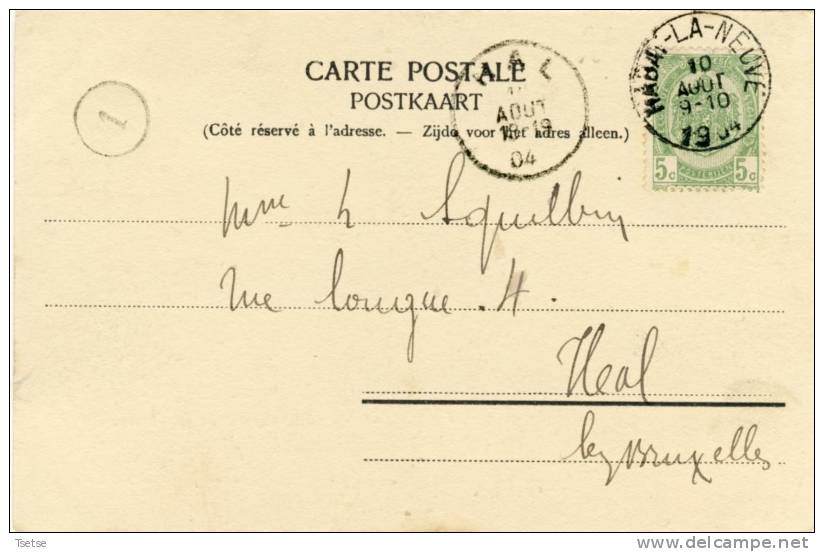 CARTE POSTALE
POSTKAART
(Côté réservé à l'adresse. — Zijde voor het adres alleen.)
HAL
AOUT
18-19
04
HABAY-LA-NEUVE
10
AOUT
9-10
1904
5c 5c
POSTERIJEN
1
Mme L Squilbin
rue longue. 4.
Hal
lez Bruxelles
Tsetse
www.delcampe.net